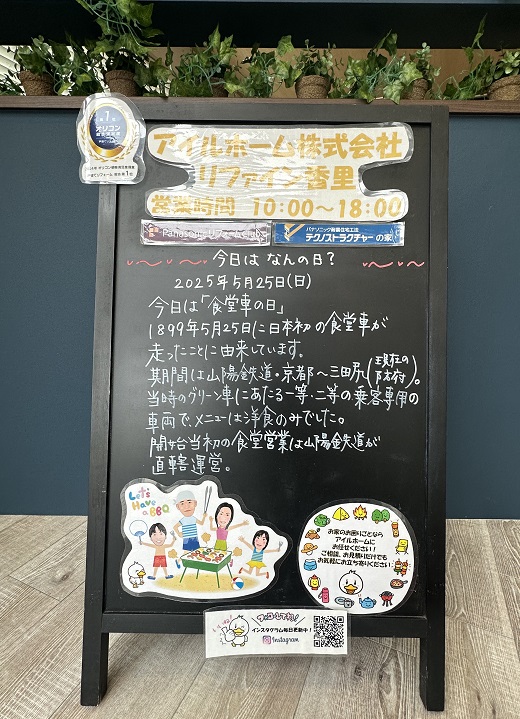 第1位
オリコン
顧客満足度
戸建てリフォーム 第1位
アイルホーム株式会社
リファイン香里
営業時間 10:00〜18:00
Panasonic リフォームClub
パナソニック耐震住宅工法
テクノストラクチャーの家
今日は なんの日?
2025年5月25日(日)
今日は「食堂車の日」
1899年5月25日に日本初の食堂車が
走ったことに由来しています。
期間は山陽鉄道・京都〜三田尻(現在の防府)。
当時のグリーン車にあたる一等・二等の乗客専用の
車両で、メニューは洋食のみでした。
開始当初の食堂営業は山陽鉄道が
直轄運営。
Let's
Have
a BBQ
お家のお困りごとなら
アイルホームに
お任せください!
ご相談、お見積りだけでも
お気軽にお立ち寄りください
フォローしてね!
インスタグラム毎日更新中!
Instagram